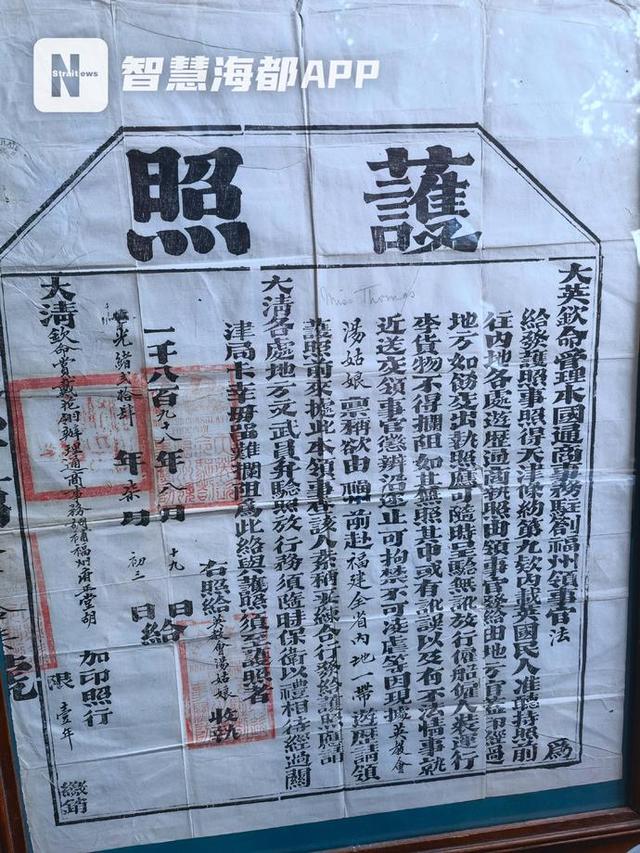 N
Straitnews
智慧海都APP
護照
Miss Thomas
大英欽命管理本國通商事務駐劄福州領事官法 為
給發護照事照得天津條約第九欵內載英國民人準聽持照前
往內地各處遊歷通商執照由領事官發給由地方官蓋印經過
地方如飭交出執照應可隨時呈驗無訛放行僱船僱人裝運行
李貨物不得攔阻如其無照其中或有訛誤以及有不法情事就
近送交領事官懲辦沿途止可拘禁不可凌虐等因現據英教會
湯姑娘 稟稱欲由福州前赴福建全省內地一帶遊歷請領
護照前來據此本領事查該人素稱妥練合行發給護照應請
大清各處地方文武員弁驗照放行務須隨時保衛以禮相待經過關
津局卡幸毋留難攔阻為此給與護照須至護照者
右照給英教會湯姑娘 收執
一千八百九十八年八月十九日給
光緒貳拾肆年柒月初三日
大清欽命賞戴花翎辦理通商事務調補福州府正堂胡 加印照行
限壹年 繳銷